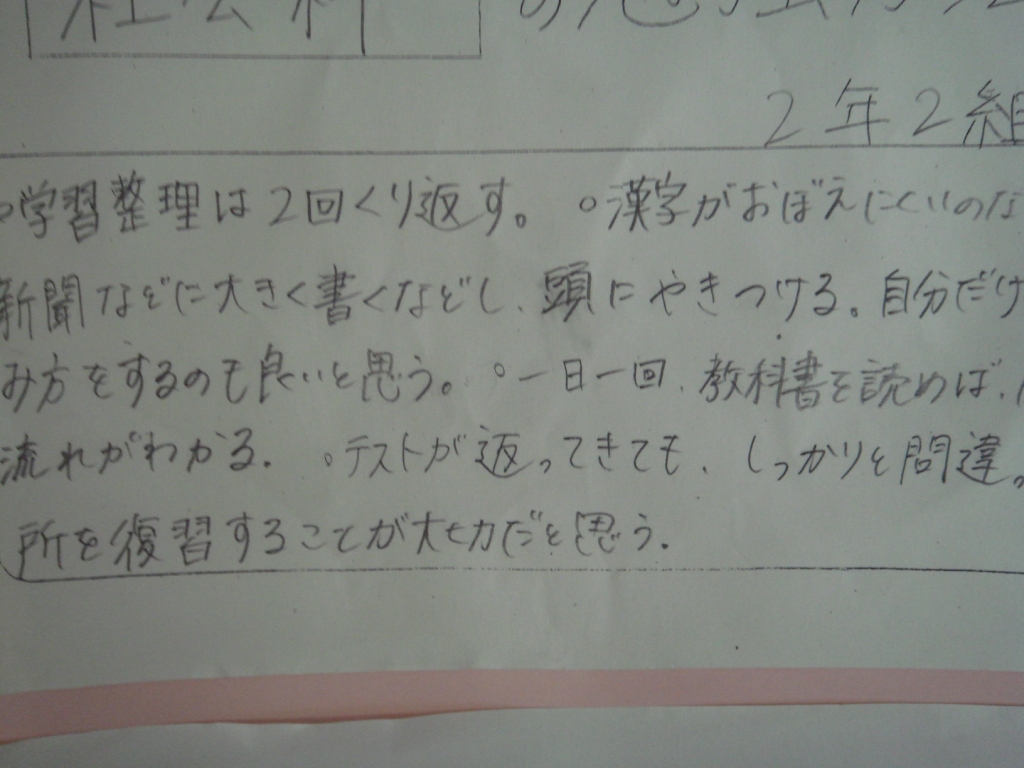 社会科 の勉強方法
2年2組
○学習整理は2回くり返す。 ○漢字がおぼえにくいのな
新聞などに大きく書くなどし、頭にやきつける。自分だけ
み方をするのも良いと思う。 ○一日一回、教科書を読めば、
流れがわかる。 ○テストが返ってきても、しっかりと間違っ
所を復習することが大切だと思う。